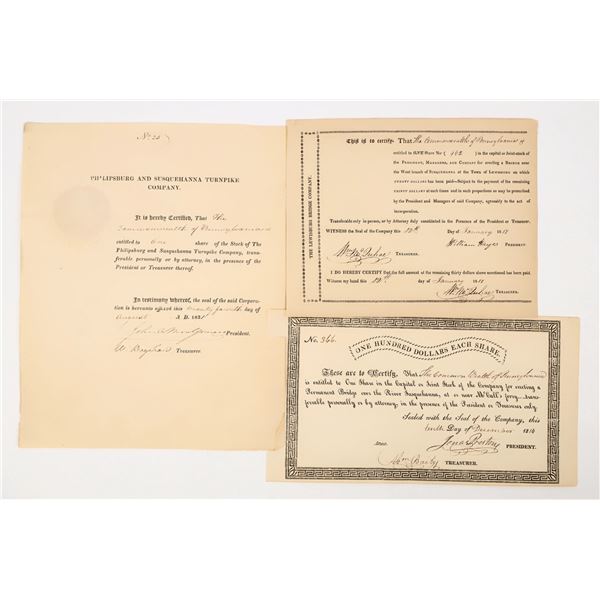 No. 25
PHILIPSBURG AND SUSQUEHANNA TURNPIKE
COMPANY.
It is hereby Certified, That The
Commonwealth of Pennsylvania is
entitled to One share of the Stock of The
Philipsburg and Susquehanna Turnpike Company, trans-
ferable personally or by attorney, in the presence of the
President or Treasurer thereof.
In testimony whereof, the seal of the said Corpora-
tion is hereunto affixed this twenty fourth day of
August A D. 1821
John Montgomery President.
W. Treasurer.
THE LEWISBURG BRIDGE COMPANY.
This is to certify, That The Commonwealth of Pennsylvania is
entitled to ONE Share No ( 992 ) in the capital or Joint-stock of the
PRESIDENT, MANAGERS, AND COMPANY for erecting a BRIDGE over the
West branch of SUSQUEHANNA at the Town of LEWISBURG on which
TWENTY DOLLARS has been paid—Subject to the payment of the remaining
THIRTY DOLLARS at such times and in such proportions as may be prescribed
by the President and Managers of said Company, agreeably to the act of
incorporation.
Transferable only in person, or by Attorney duly constituted in the Presence of the President or Treasurer.
WITNESS the Seal of the Company this 12th Day of January 181
William Hayes PRESIDENT.
TREASURER.
I DO HEREBY CERTIFY that the full amount of the remaining thirty dollars above mentioned has been paid
Witness my hand this 12th day of January 181
TREASURER.
No. 366.
ONE HUNDRED DOLLARS EACH SHARE.
These are to Certify, That The Common Wealth of Pennsylvania
is entitled to One Share in the Capital or Joint Stock of the Company for erecting a
Permanent Bridge over the River Susquehanna, at or near McCall's ferry, trans-
ferable personally or by attorney, in the presence of the President or Treasurer only.
Sealed with the Seal of the Company, this
tenth Day of December 1814
Jonas Preston PRESIDENT.
Wm TREASURER.